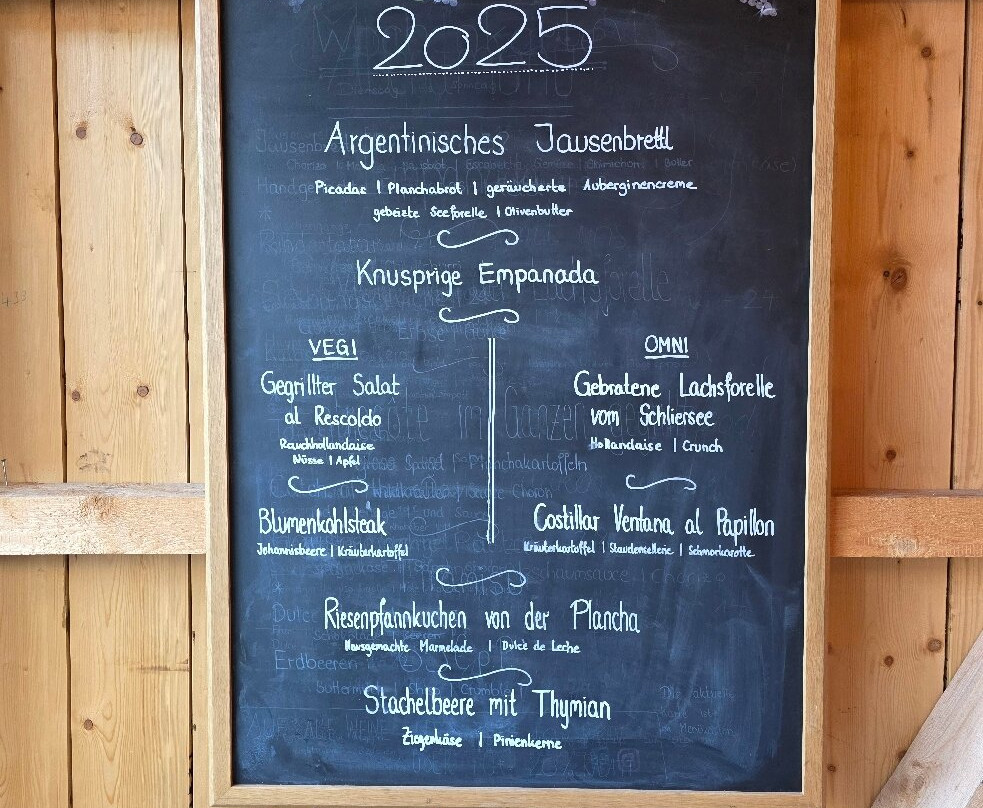 2025
Argentinisches Jausenbrettl
Picadas | Planchabrot | geräucherte Auberginencreme
gebeizte Seeforelle | Olivenbutter
Knusprige Empanada
VEGI
Gegrillter Salat
al Rescoldo
Rauchhollandaise
Nüsse | Apfel
Blumenkohlsteak
Johannisbeere | Kräuterkartoffel
OMNI
Gebratene Lachsforelle
vom Schliersee
Hollandaise | Crunch
Costillar Ventana al Papillon
Kräuterkartoffel | Staudensellerie | Schmorkarotte
Riesenpfannkuchen von der Plancha
Hausgemachte Marmelade | Dulce de Leche
Stachelbeere mit Thymian
Ziegenkäse | Pinienkerne